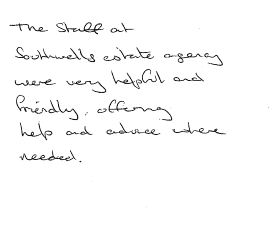 The staff at
Southwells estate agency
were very helpful and
friendly, offering
help and advice where
needed.